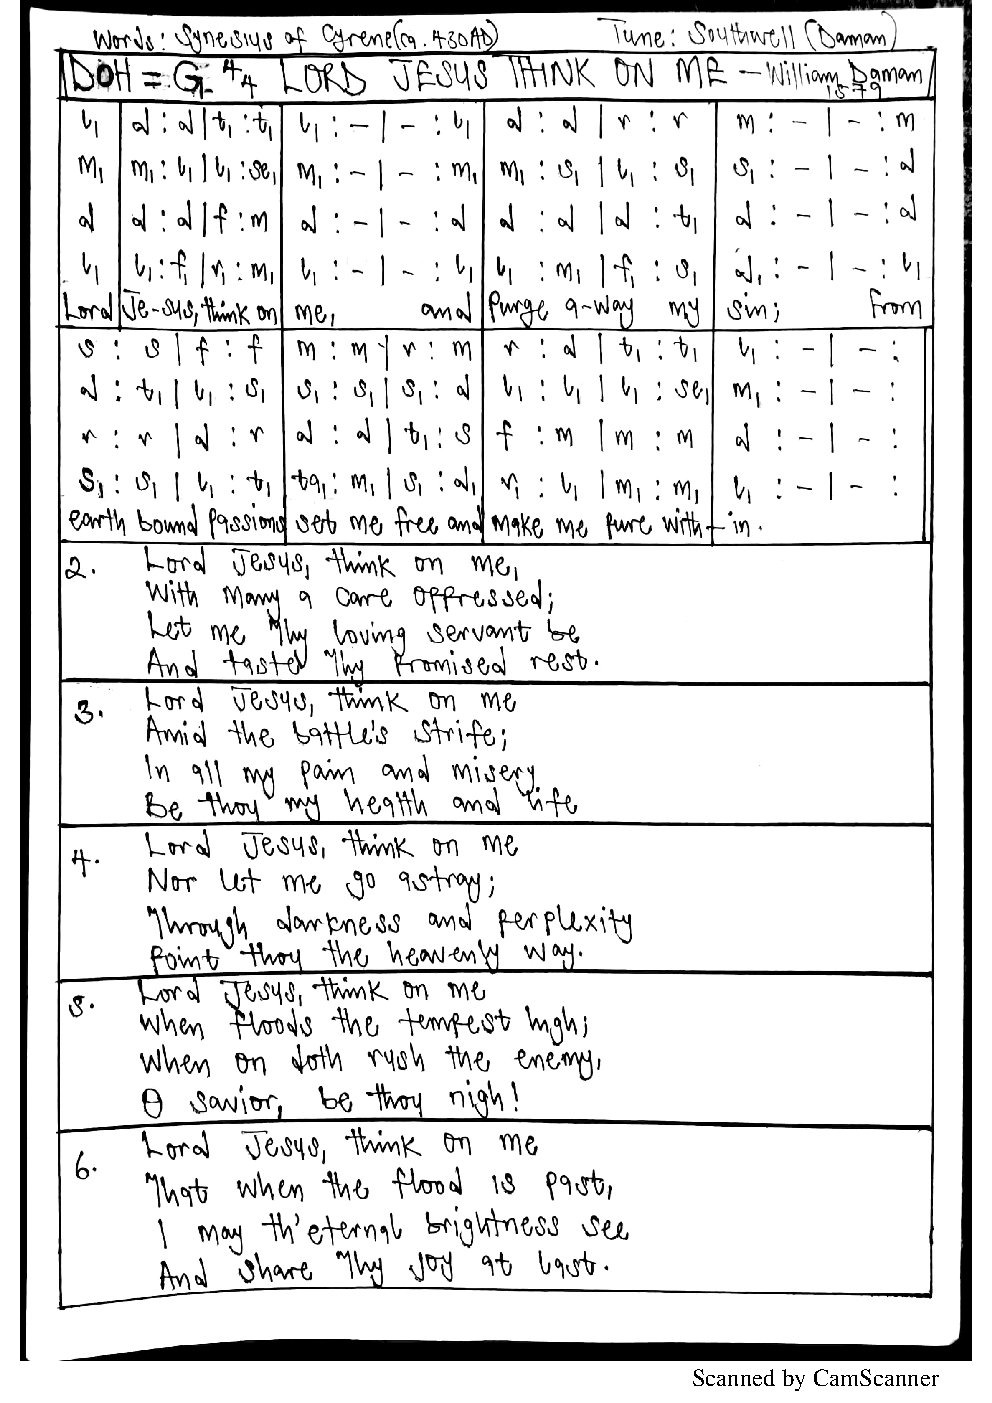 Words: Synesius of Cyrene (ca. 430AD) Tune: Southwell (Daman)
DOH = G 4/4 LORD JESUS THINK ON ME – William Daman 1579
l₁ | d : d | t₁ : t₁ | l₁ : – | – : l₁ | d : d | r : r | m : – | – : m
m₁ | m₁ : l₁ | l₁ : se₁ | m₁ : – | – : m₁ | m₁ : s₁ | l₁ : s₁ | s₁ : – | – : d
d | d : d | f : m | d : – | – : d | d : d | d : t₁ | d : – | – : d
l₁ | l₁ : f₁ | r₁ : m₁ | l₁ : – | – : l₁ | l₁ : m₁ | f₁ : s₁ | d₁ : – | – : l₁
Lord Je-sus, think on me, and purge a-way my sin; from
s : s | f : f | m : m | r : m | r : d | t₁ : t₁ | l₁ : – | – :
d : t₁ | l₁ : s₁ | s₁ : s₁ | s₁ : d | l₁ : l₁ | l₁ : se₁ | m₁ : – | – :
r : r | d : r | d : d | t₁ : s | f : m | m : m | d : – | – :
s₁ : s₁ | l₁ : t₁ | ta₁ : m₁ | s₁ : d₁ | r₁ : l₁ | m₁ : m₁ | l₁ : – | – :
earth bound passions set me free and make me pure with-in.
2. Lord Jesus, think on me,
With many a care oppressed;
Let me Thy loving servant be
And taste Thy promised rest.
3. Lord Jesus, think on me
Amid the battle's strife;
In all my pain and misery
Be thou my health and life
4. Lord Jesus, think on me
Nor let me go astray;
Through darkness and perplexity
Point thou the heavenly way.
5. Lord Jesus, think on me
When floods the tempest high;
When on doth rush the enemy,
O savior, be thou nigh!
6. Lord Jesus, think on me
That when the flood is past,
I may th'eternal brightness see
And share Thy joy at last.
Scanned by CamScanner